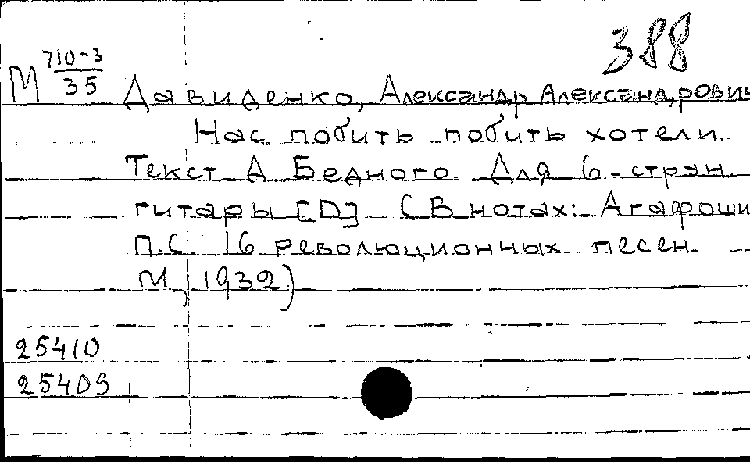 388
М 710-3
35
Давиденко, Александр Александрович
Нас побить побить хотели.
Текст Д Бедного Для 6-струн
гитары [D] (В нотах: Агафоши
П.С 16 революционных песен
М, 1932)
25410
25409